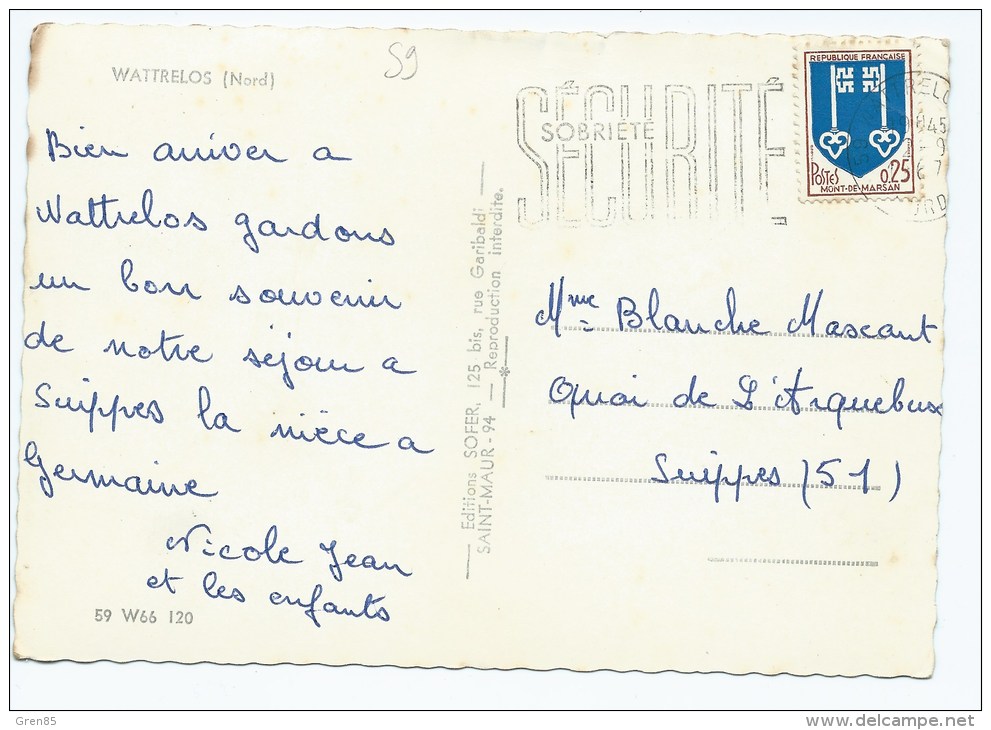 WATTRELOS (Nord)
59
Bien arriver a
Wattrelos gardons
un bon souvenir
de notre séjour a
Suippes la nièce a
Germaine
Nicole Jean
et les enfants
59 W66 120
Editions SOFER, 125 bis, rue Garibaldi
SAINT-MAUR - 94 — Reproduction interdite.
SÉCURITÉ
SOBRIÉTÉ
REPUBLIQUE FRANÇAISE
POSTES 0,25
MONT-DE-MARSAN
Mme Blanche Mascart
Quai de L'Arquebuse
Suippes (51)
Gren85
www.delcampe.net